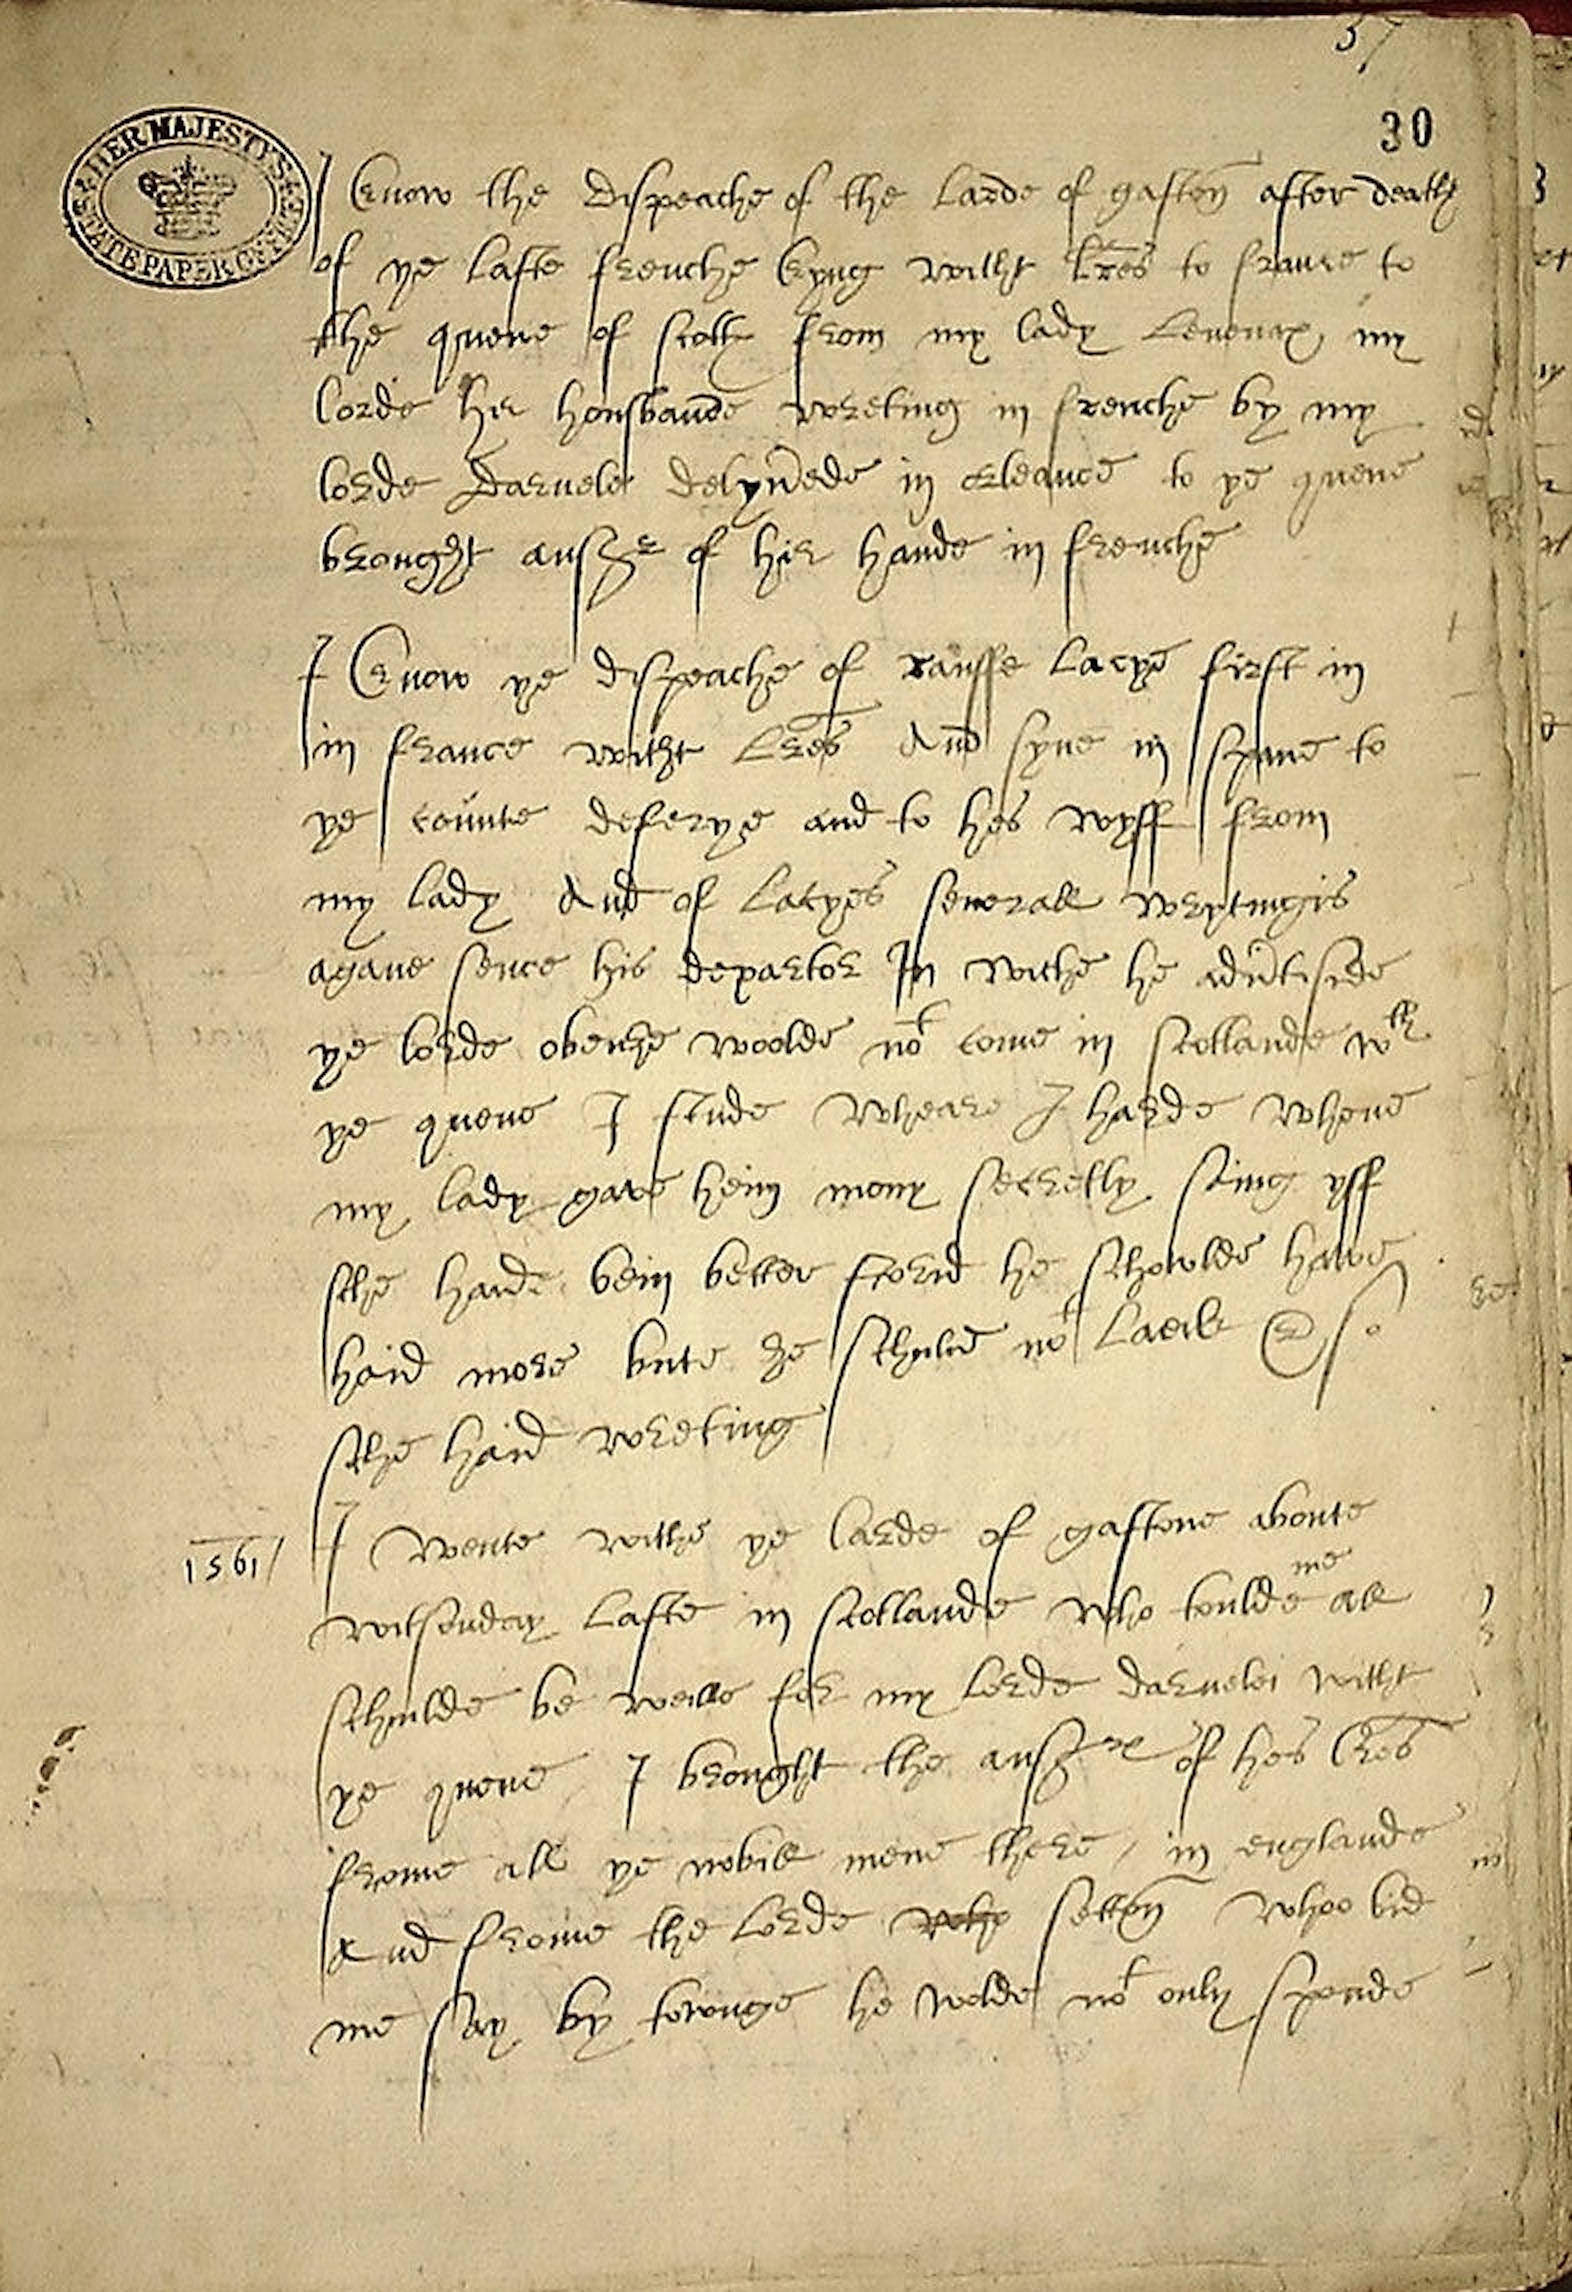 37
30
HER MAJESTY'S
STATE PAPER OFFICE
I Know the dispeache of the Larde of gastoñ after deathe
of ye laste frenche kyng witht l̃res to france to
the quene of scottz from my lady Levenax my
lorde hir housbande wreting in frenche by my
lorde Darnelei delyṽede in orleance to ye quene
broughṭ ansʒr of hir hande in frenche
I Know ye dispeache of rausse Lacye first in
in france witht L̃res And syne in spane to
ye counte deferye and to hes wyff from
my lady And of Lacyes severall wrytingis
agane sence his departor In withe he adṽtiside
ye lorde obenʒe woolde not come in scotlande wth
ye quene I stude wheare I harde whene
my lady gave heim mony secretly sāing yff
sche haide bein better storid he schowlde have
haid more bute he schulde not Lacik &c so
sche haid wreting
1561/ I wente withe ye larde of gastone aboute
witsonday laste in scotlande who toulde me all
schuilde be weille for my Lorde darnelei witht
ye quene I brought the ansʒre of hes l̃res
frome all ye nobill mene there / in englande
And frome the Lorde who settoñ whoo bid
me say by towunge he wolde not only spende